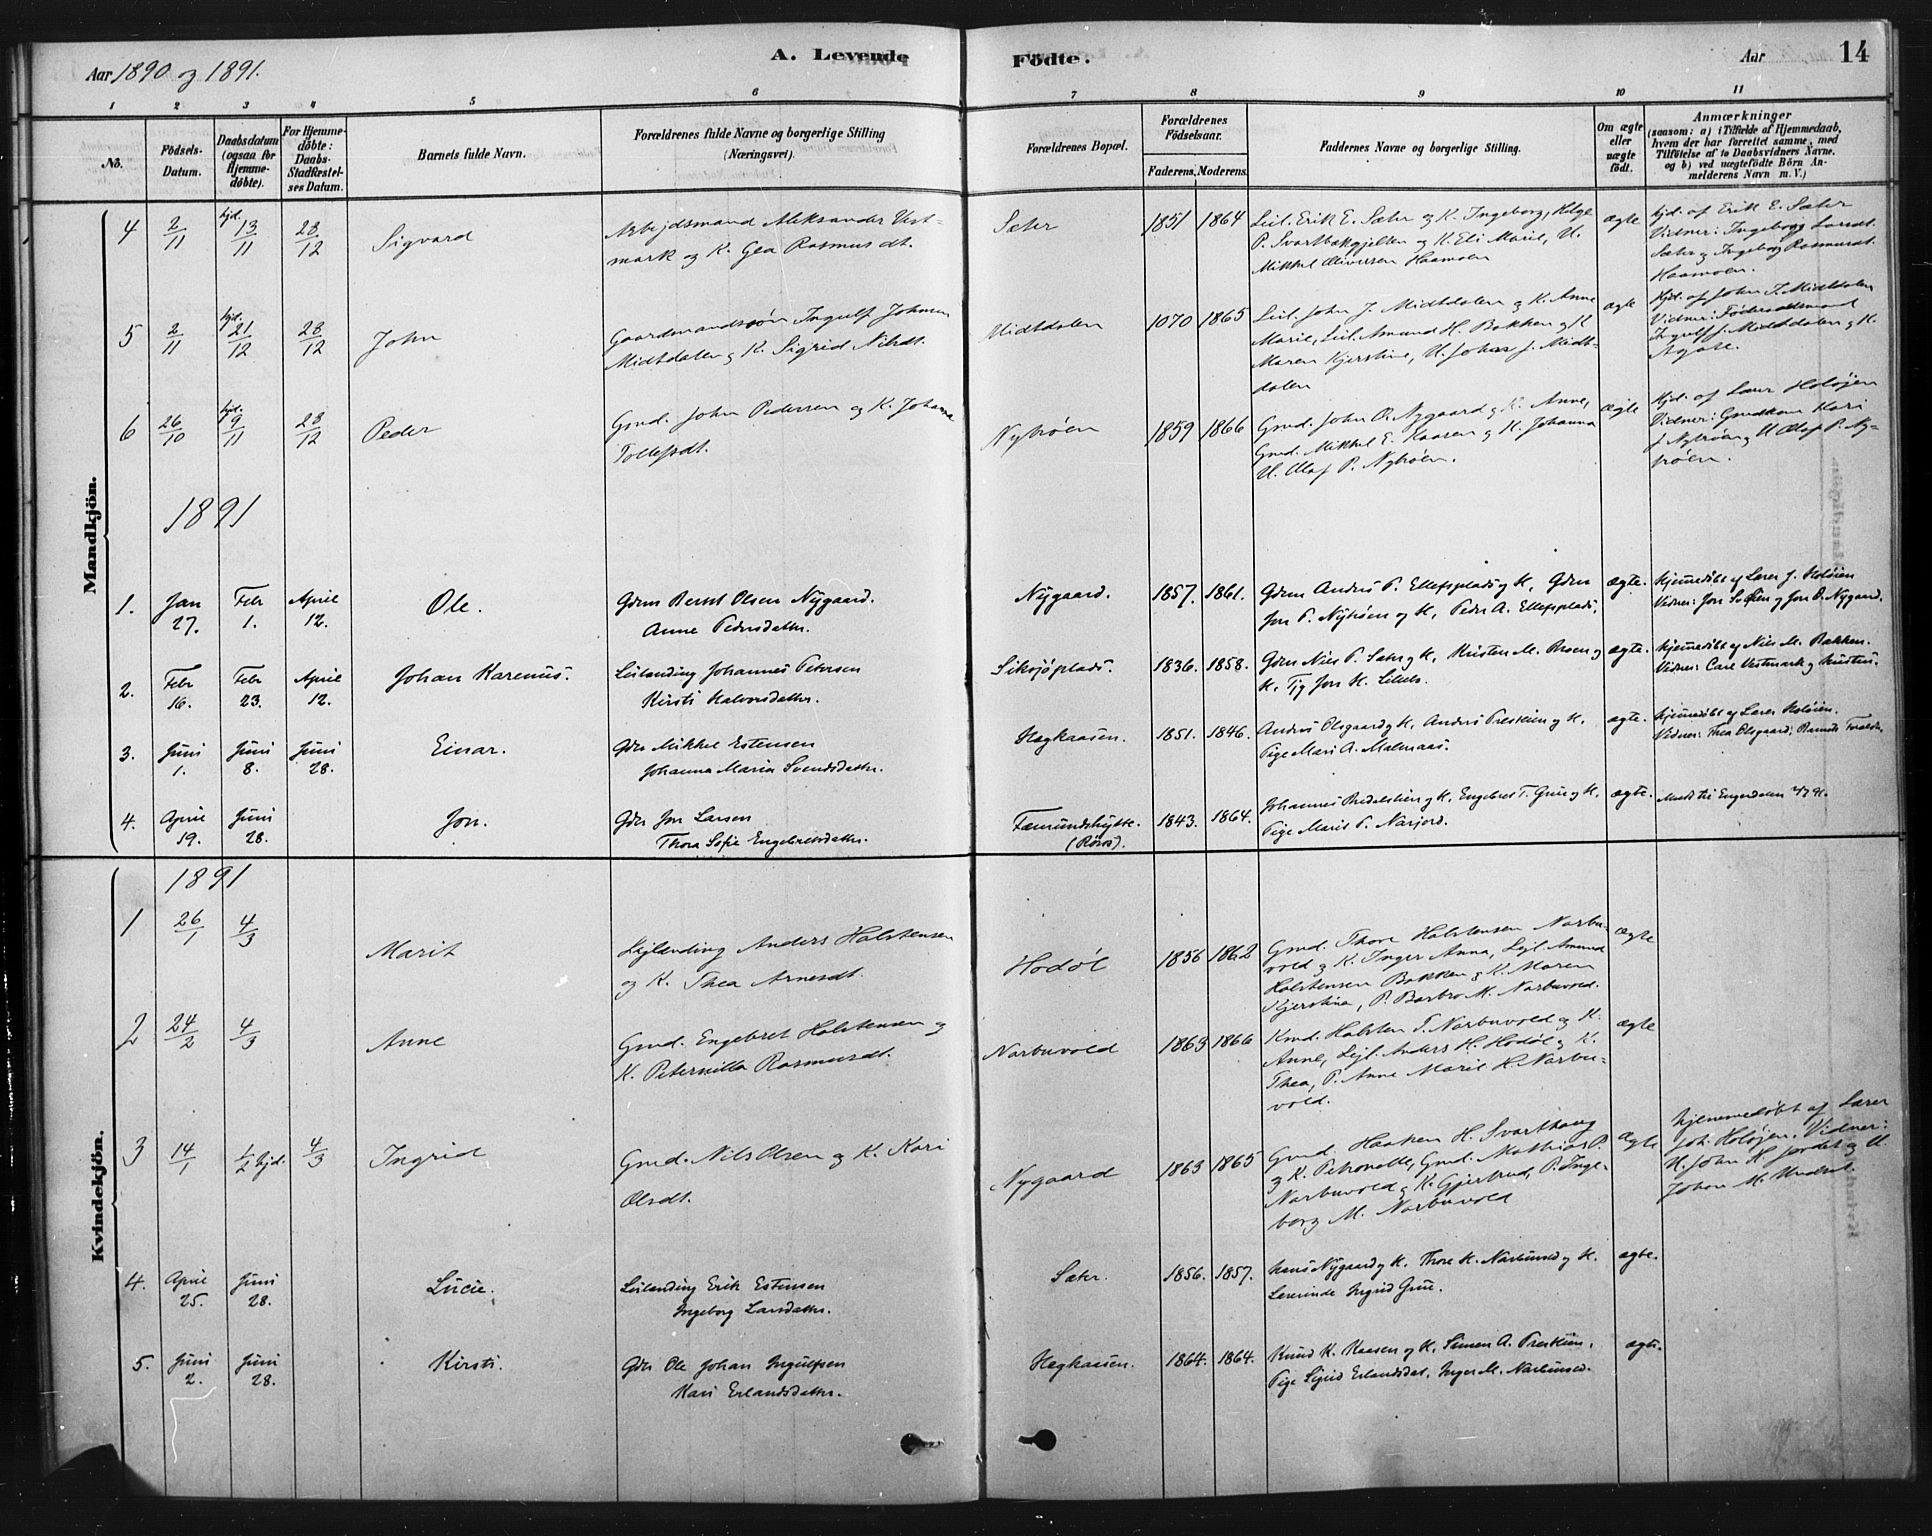 Aar 1890 og 1891.
A. Levende Födte.
Aar 14
1 2 3 4 5 6 7 8 9 10 11
No.
Födsels-Datum.
Daabsdatum (ogsaa for Hjemme-döbte).
For Hjemme-döbte: Daabs-Stadfæstel-ses Datum.
Barnets fulde Navn.
Forældrenes fulde Navne og borgerlige Stilling (Næringsvei).
Forældrenes Bopæl.
Forældrenes Födselsaar.
Faderens. Moderens.
Faddernes Navne og borgerlige Stilling.
Om ægte eller uægte födt.
Anmærkninger
(saasom: a) i Tilfælde af Hjemmedaab, hvem der har forrettet samme, med Tilföielse af to Daabsvidners Navne. og b) ved uægtefödte Börn An-melderens Navn m. V.)
Mandkjön.
4 2/11 hjd. 13/11 28/12 Sigvard
Arbejdsmand Aleksander Vest-
mark og K. Gea Rasmusdt.
Sæter 1851 1864
Leil. Erik E. Sæter og K. Ingeborg, Helge
P. Svartbakgjelten og K. Eli Marie, U.
Mikkel Oliversen Haamoen
ægte
hjd. af Erik E. Sæter
Vidner: Ingeborg Larsdt.
Sæter og Ingeborg Rasmusdt.
Haamoen.
5 2/11 hjd. 21/12 28/12 John
Gaardmandssön Ingulf Johnsen
Midtdalen og K. Sigrid Nilsdt.
Midtdalen 1070 1865
Leil. John J. Midtdalen og K. Anne
Marie, Leil. Amund H. Bakken og K
Maren Kjerstine, U. Johan J. Midt-
dalen
ægte
hjd. af John J. Midtdalen
Vidner: Föderaadsmand
Ingulf J. Midtdalen og K.
Agate.
6 26/10 hjd. 9/11 28/12 Peder
Gmd. John Pedersen og K. Johanna
Tollefsdt.
Nyhröen 1859 1866
Gmd. John O. Nygaard og K. Anne,
Gmd. Mikkel E. Kaasen og K. Johanna
U. Olaf P. Nyhröen.
ægte
hjd. af Lærer Holöjen
Vidner: Gmdkone Kari
J. Nyhröen og U. Olaf P. Ny-
hröen.
1891
1. Jan 27. Feb 1. April 12. Ole.
Gdm Bernt Olsen Nygaard.
Anne Pedersdatter.
Nygaard. 1857. 1861.
Gdm Anders P. Ellefsplads og K, Gdm
Jon P. Nyhröen og K, Peder A. Ellefsplads.
ægte.
Hjemmedöbt af Lærer J. Holöien
Vidner: Jon og Jon O. Nygaard.
2. Febr 16. Febr 23. April 12. Johan Karenus.
Leilending Johannes Petersen
Kirsti Halvorsdatter.
Siksjöplads. 1836. 1858.
Gdm Nils P. Sæter og K, Kristen M. Moen og
K. Pig Jon K.
ægte.
Hjemmedöbt af Nils M. Bakken.
Vidner: Carl Vestmark og hustru.
3. Juni 1. Juni 8. Juni 28. Einar.
Gdbr Mikkel Estensen
Johanna Maria Svendsdatter.
Hegkaasen. 1851. 1846.
Anders Olsgaard og K, Anders Presttien og K,
Pige Mari A. Malmaas.
ægte.
Hjemmedöbt af Lærer Holöien.
Vidner: Thea Olsgaard, Barnets Forældre.
4. April 19. Juni 28. Jon.
Gdbr Jon Larsen
Thora Sofie Engebretsdatter.
Fæmundshytte. (Röros). 1843. 1864.
Johannes og K, Engebret T. Grue og K,
Pige Marit P. Narjord.
ægte.
Meldt til Engerdalen
Kvindekjön.
1891
1 26/1 4/3 Marit
Lejlending Anders Halstensen
og K. Thea Arnesdt.
Hodöl 1856 1862
Gmd. Thore Halstensen Narbu-
vold og K. Inger Anna, Lejl. Amund
Halstensen Bakken og K. Maren
Kjerstina, P. Barbro M. Narbuvold.
ægte
2 24/2 4/3 Anne
Gmd. Engebret Halstensen og
K. Peternilla Rasmusdt.
Narbuvold 1863 1866
Kmd. Halsten T. Narbuvold og K.
Anne, Lejl. Anders H. Hodöl og K.
Thea, P. Anne Marie H. Narbu-
vold.
ægte
3 14/1 1/2 hjd. 4/3 Ingrid
Gmd. Nils Olsen og K. Kari
Olsdt.
Nygaard 1863 1865
Gmd Haaken H. Svarthaug
og K. Petronelle, Gmd. Mathias P.
Narbuvold og K. Gjertrud, P. Inge-
borg M. Narbuvold
ægte
hjemmedöbt af Lærer
Joh. Holöjen. Vidner:
U. John H. Jordet og U.
Johan M.
4. April 25. Juni 28. Lucie.
Leilending Erik Estensen
Ingeborg Larsdatter.
Sæter. 1856. 1857.
Hans Nygaard og K. Thore K. Narbuvold og K.
Lærerinde Ingrid Grue.
ægte.
5. Juni 2. Juni 28. Kirsti.
Gdbr Ole Johan Ingulfsen
Kari Erlandsdatter.
Hegkaasen. 1864. 1864.
Knud K. Kaasen og K. Simen A. Presttien,
Pige Sigrid Erlandsdat. Inger M. Narbuvold.
ægte.